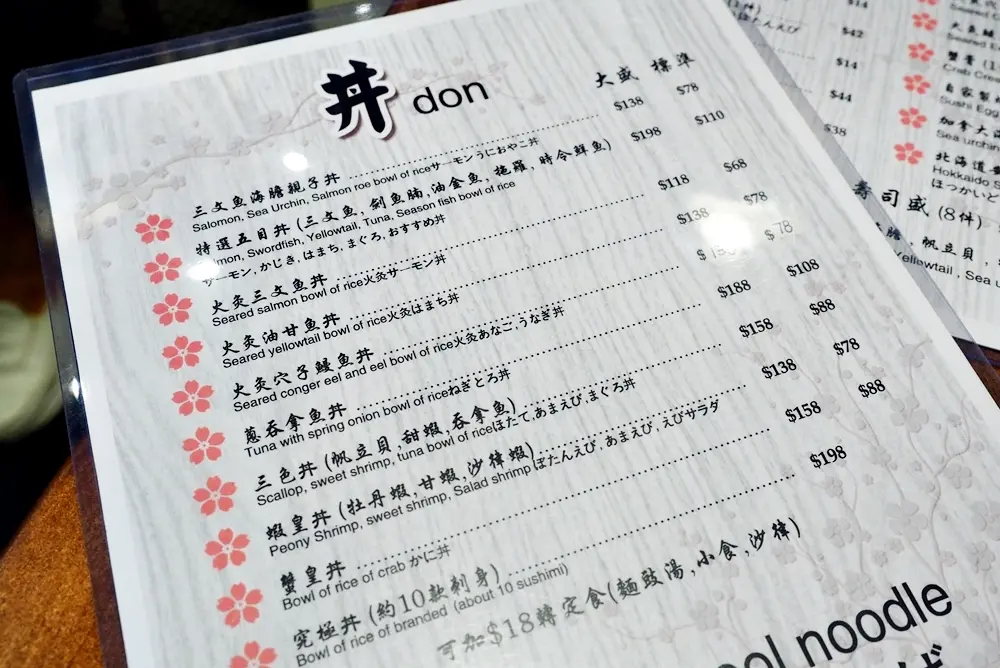 丼 don
大盛 標準
三文魚海膽親子丼 $138 $78
Salomon, Sea Urchin, Salmon roe bowl of riceサーモンうにおやこ丼
特選五目丼 (三文魚, 劍魚腩, 油金魚, 拖羅, 時令鮮魚) $198 $110
Salmon, Swordfish, Yellowtail, Tuna, Season fish bowl of rice
サーモン, かじき, はまち, まぐろ, おすすめ丼
火炙三文魚丼 $118 $68
Seared salmon bowl of rice火炙サーモン丼
火炙油甘魚丼 $138 $78
Seared yellowtail bowl of rice火炙はまち丼
火炙穴子鰻魚丼 $78
Seared conger eel and eel bowl of rice火炙あなご,うなぎ丼
蔥吞拿魚丼 $188 $108
Tuna with spring onion bowl of riceねぎとろ丼
三色丼 (帆立貝, 甜蝦, 吞拿魚) $158 $88
Scallop, sweet shrimp, tuna bowl of riceほたて,あまえび,まぐろ丼
蝦皇丼 (牡丹蝦, 甘蝦, 沙律蝦) $138 $78
Peony Shrimp, sweet shrimp, Salad shrimp ぼたんえび, あまえび, えびサラダ
蟹皇丼 $158 $88
Bowl of rice of crab かに丼
究極丼 (約10款刺身) $198
Bowl of rice of branded (about 10 sushimi)
可加$18轉定食(麵豉湯,小食,沙律)
ol noodle
ど
ぼたんえび
$14
$42
$14
$44
$38
寿司盛 (8件)
帆立貝
Yellowtail, Sea u
Seared E
蟹膏 (1
Crab Crea
自家製
Sushi Egg
加拿大海
Sea urchin
北海道
Hokkaido S
ほっかいど